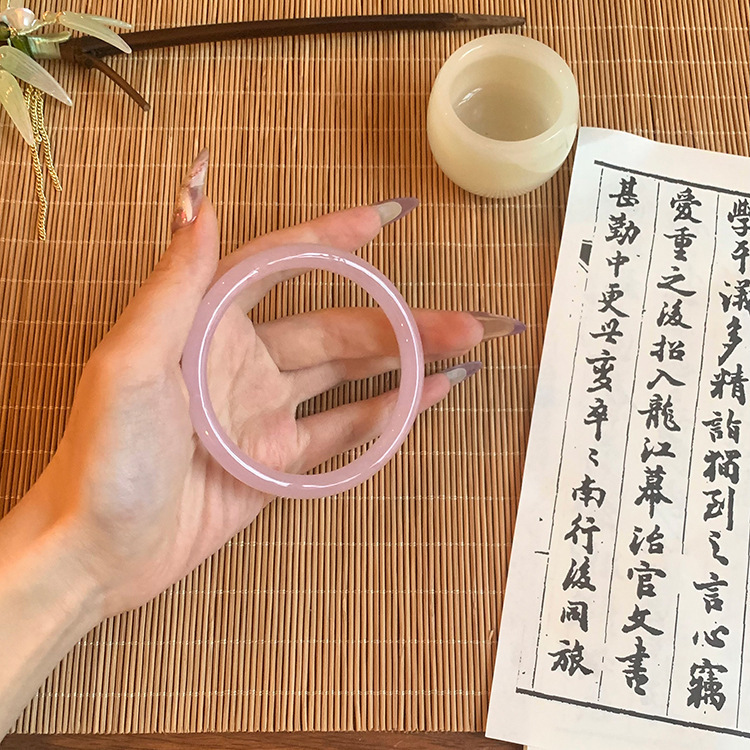 學平議多精詣獨到之言心竊
愛重之後招入龍江幕治官文書
甚勤中更世變卒卒南行後同旅